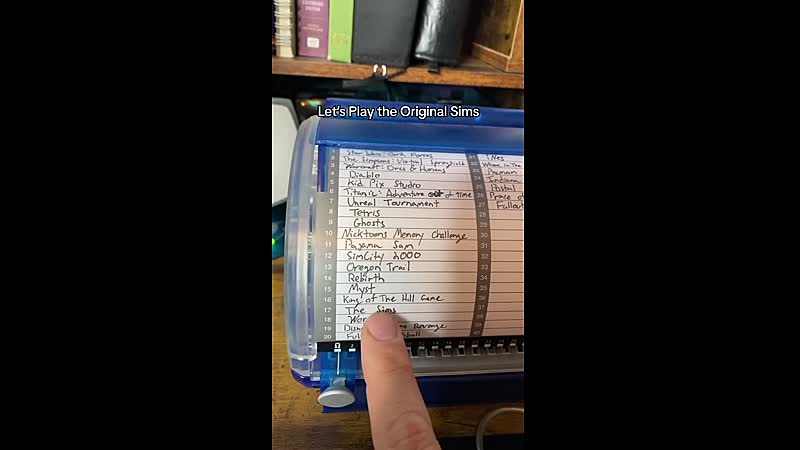 Let's Play the Original Sims
1 Star Wars: Dark Forces
2 The Simpsons: Virtual Springfield
3 Warcraft: Orcs & Humans
4 Diablo
5 Kid Pix Studio
6 Titanic: Adventure out of time
7 Unreal Tournament
8 Tetris
9 Ghosts
10 Nicktoons Memory Challenge
11 Pajama Sam
12 SimCity 2000
13 Oregon Trail
14 Rebirth
15 Myst
16 King of The Hill Game
17 The Sims
18
19 Revenge
20
21
22 Where in The
23 Pacman
24 Indiana
25 Postal
26 Prince of
27 Fallout
28
29
30
31
32
33
34
35
36
37
38
39